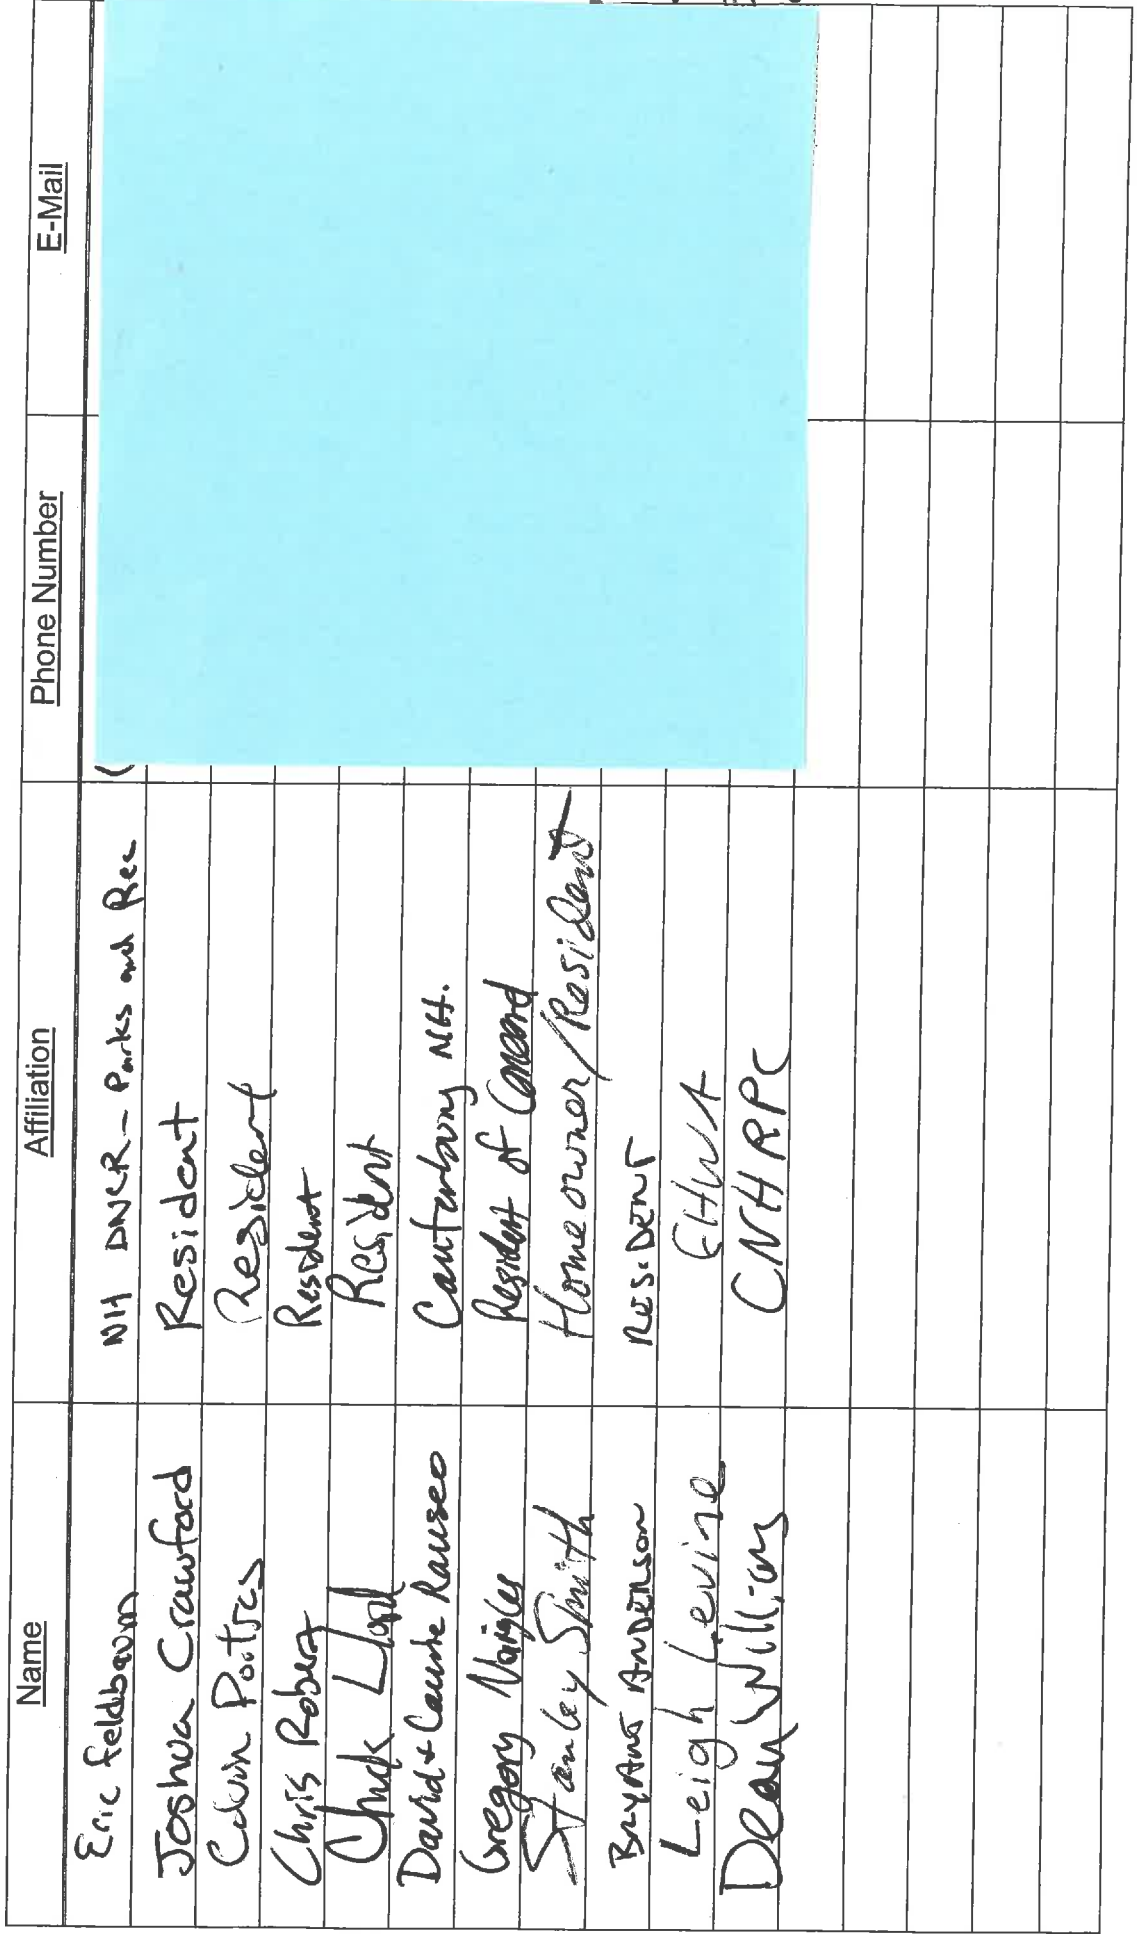 Name Affiliation Phone Number E-Mail
Eric Feldbaum NH DNCR - Parks and Rec (
Joshua Crawford Resident
Calvin Poitras Resident
Chris Robert Resident
Chuck Lloyd Resident
David + Laurie Rauseo Canterbury NH.
Gregory Resident of Concord
Stanley Smith Homeowner/Resident
Bryant Anderson Resident
Leigh Levine FHWA
Dean Williams CNHRPC